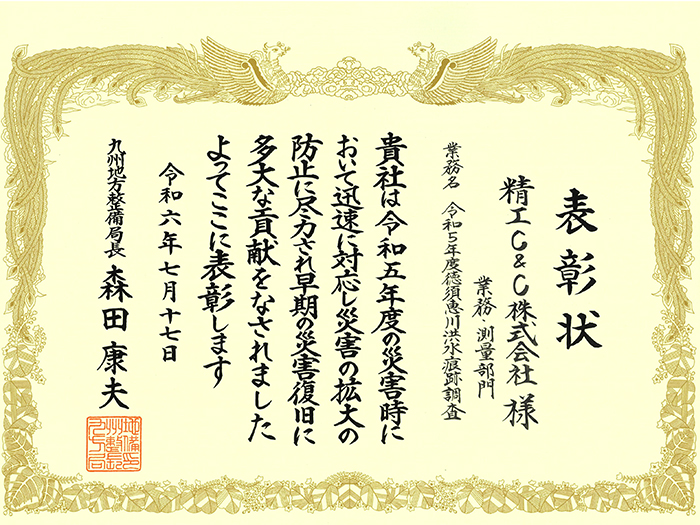 表彰状
精工C&C株式会社 様
業務・測量部門
業務名 令和5年度徳須恵川洪水痕跡調査
貴社は令和五年度の災害時に
おいて迅速に対応し災害の拡大の
防止に尽力され早期の災害復旧に
多大な貢献をなされました
よってここに表彰します
令和六年七月十七日
九州地方整備局長 森田康夫